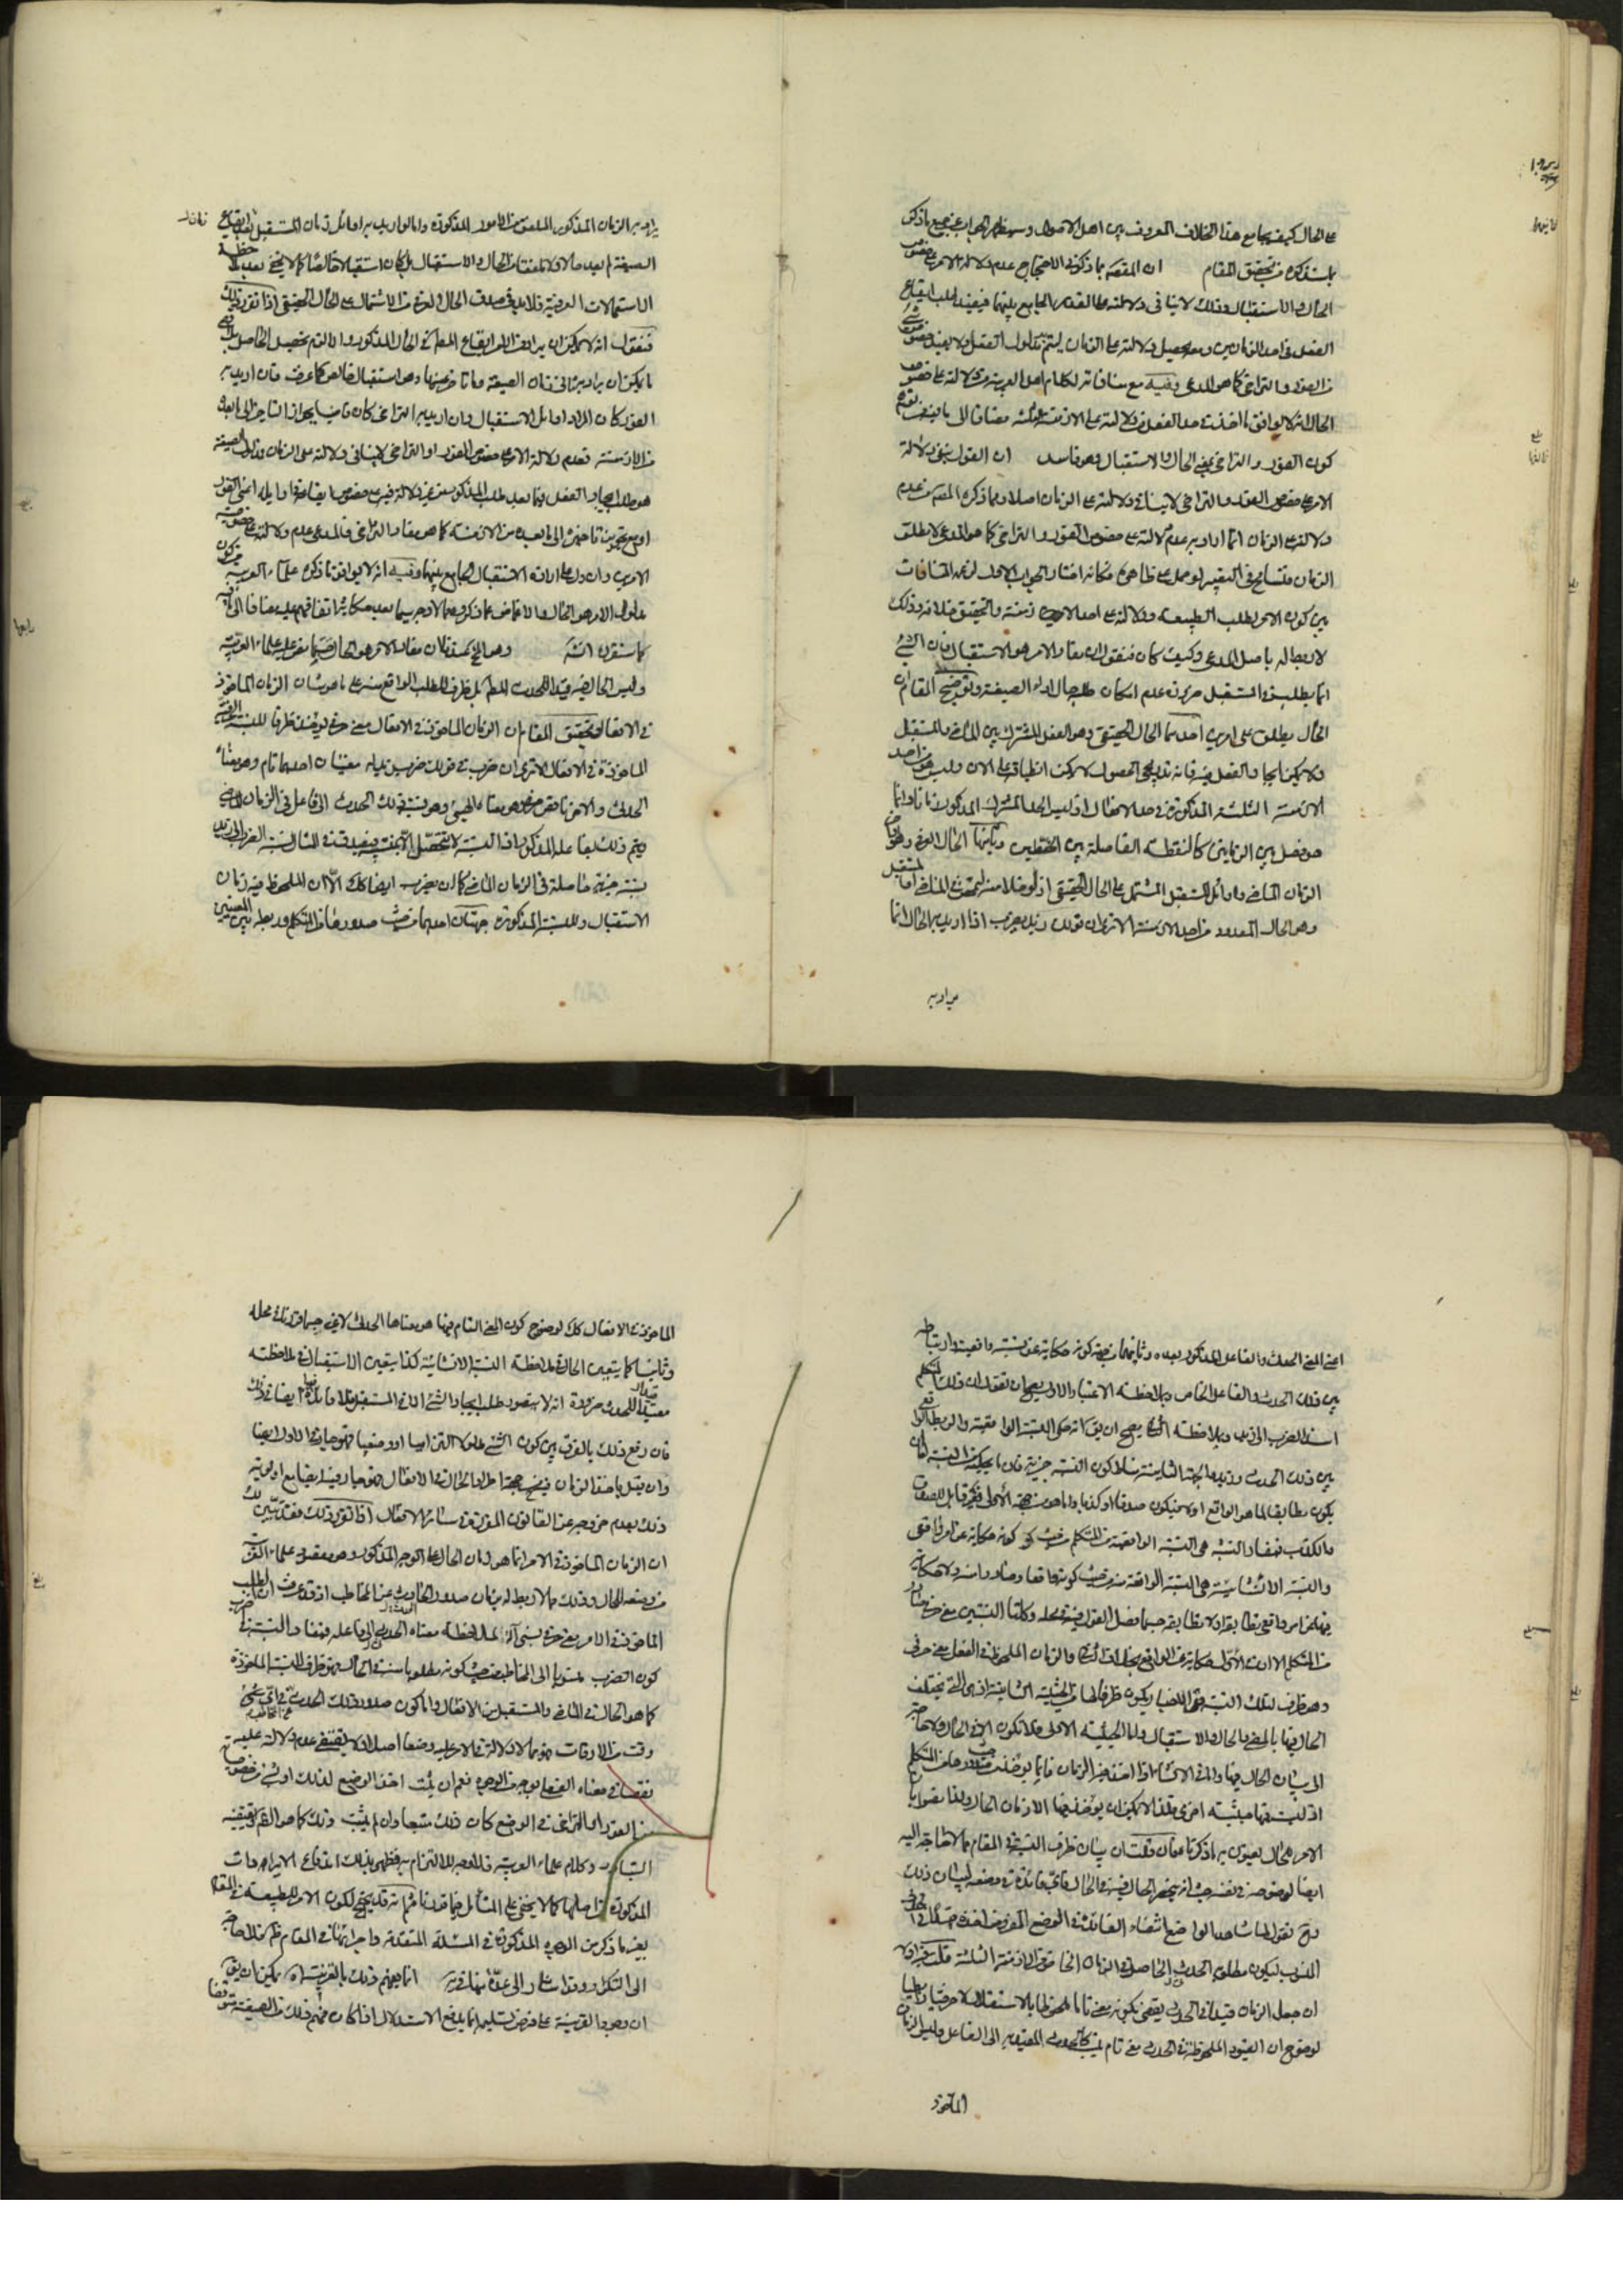 على الحال كيف يجامع هذا الخلاف المعروف بين اهل الاصول وسيظهر الجواب عن جميع ما ذكر
بما سنذكره من تحقيق المقام ان المقصود بما ذكره في الاحتجاج عدم دلالة الامر على خصوص
الحال والاستقبال وذلك لا ينافي دلالته على القدر الجامع بينهما فيفيد طلب ايقاع
الفعل في احد الزمانين ومعه يحصل دلالته على الزمان ليتم مدلول الفعل ولا يفيد خصوص شئ
من الفور والتراخي كما هو المدعى وفيه مع منافاته لكلام اهل العربية من دلالته على خصوص
الحال انه لا يوافق ما اخذت في حد الفعل من دلالته على الازمنة الثلثة مضافا الى ما فيه من توهم
كون الفور والتراخي بمعنى الحال والاستقبال وهو فاسد ان القول بنفي دلالة
الامر على خصوص الفور والتراخي لا ينافي دلالته على الزمان اصلا وما ذكره المصنف من عدم
دلالته على الزمان انما اراد به عدم دلالته على خصوص الفور والتراخي كما هو المدعى لا مطلق
الزمان فتسامح في التعبير او حمل على ظاهره فكانه اختار الجواب الاول لزعمه المنافات
بين كون الامر لطلب الطبيعة ودلالته على احد الازمنة والتحقيق خلافه وذلك
لا ربط له باصل المدعى وكيف كان فنقول ان مفاد الامر هو الاستقبال فان الشئ
انما يطلب في المستقبل ضرورة عدم امكان طلبه حال اداء الصيغة وتوضيح المقام ان
الحال يطلق على امرين احدهما الحال الحقيقي وهو الفصل المشترك بين الماضي والمستقبل
ولا يمكن ايجاد الفعل فيه فانه تدريجي الحصول لا يمكن انطباقه على الآن وليس هو من احد
الازمنة الثلثة المذكورة في حد الافعال اذ ليس الحد المشترك المذكور زمانا وانما
هو فصل بين الزمانين كالنقطة الفاصلة بين الخطين وثانيهما الحال العرفي وهو اواخر
الزمان الماضي واوائل المستقبل المشتمل على الحال الحقيقي اذ لو خلا منه لتمحض في الماضي او المستقبل
وهو الحال المعدود من احد الازمنة الا ترى ان قولك زيد يضرب اذا اريد به الحال انما
يراد به
يراد به الزمان المذكور الملفق من الامور المذكورة واما لو اريد به اوائل زمان المستقبل بعد ايقاع
الصيغة لم يعد حالا ولا ملفقا من الحال والاستقبال بل كان استقبالا خالصا كما لا يخفى بعد ملاحظة
الاستعمالات العرفية فلا بد في صدق الحال العرفي من الاشتمال على الحال الحقيقي اذا تقرر ذلك
فنقول انه لا يمكن ان يراد من الامر ايقاع المطلوب في الحال المذكور والا لزم تحصيل الحاصل بل اقصى
ما يمكن ان يراد به ثاني زمان الصيغة وما تاخر عنها وهو استقبال خالص كما عرفت فان اريد به
الفور كان المراد اوائل الاستقبال وان اريد به التراخي كان قاضيا بجواز التاخير الى ما بعده
من الازمنة فعدم دلالة الامر على خصوص الفور او التراخي لا ينافي دلالته على الزمان
هو طلب ايجاد الفعل فيما بعد طلب المذكور من غير دلالة فيه على خصوص ايقاعه في اوايله اعني الفور
او مع تجويز تاخيره الى ما بعده من الازمنة كما هو مفاد التراخي فالمدعى عدم دلالته على خصوص شئ
من الامرين وان دل على ارادة الاستقبال الجامع بينهما وفيه انه لا يوافق ما ذكره علماء العربية من كون
مدلول الامر هو الحال والاغماض عما ذكروه مما لا وجه سيما بعد حكاية اتفاقهم عليه مضافا الى ما فيه
مما ستعرف انشاء الله وهو الحق فان مفاد الامر هو الحال حسبما نص عليه علماء العربية
وليس الحال فيه قيدا للحدث المطلوب بل ظرف للطلب الواقع منه على ما هو شان الزمان الماخوذ
في الافعال وتحقيق المقام ان الزمان الماخوذ في الافعال معنى حرفي يؤخذ ظرفا للنسبة الحرفية
الماخوذة في الافعال الا ترى ان ضرب في قولك ضرب زيد له معنيان احدهما تام وهو معناه
الحدثي والاخر ناقص حرفي هو معناه الهيئي وهو نسبة ذلك الحدث الى فاعل في الزمان الماضي
ويتم ذلك بفاعله المذكور اذ النسبة لا تتحصل الا بمنتسبيه فيفيد قولنا في المثال نسبة الضرب الى زيد
بنسبة خبرية حاصلة في الزمان الماضي كما ان يضرب ايضا كذلك الا ان الملحوظ فيه زمان
الاستقبال وللنسبة المذكورة جهتان احدهما من حيث صدورها من المتكلم وربطه بين المعنيين
اعني المعنى الحدثي والفاعل المذكور بعده وثانيهما من جهة كونه حكاية عن نسبة واقعية وارتباطه
بين ذلك الحدث والفاعل الخاص وبملاحظة الاعتبار الاول يصح ان تقول ان ذلك المتكلم
اسند الضرب الى زيد وبملاحظة الثاني يصح ان يق انه حكى النسبة الواقعية والربط الواقع
بين ذلك الحدث وزيد والجهة الثانية مناط كون النسبة خبرية فان ما يحكيه من النسبة اما ان
يكون مطابقا لما هو الواقع او لا فيكون صدقا او كذبا واما هو من جهة الاولى فغير قابل للصدق
والكذب فمفاد النسبة هي النسبة الواقعة من المتكلم من حيث كونه حكاية عن امر واقعي
والنسبة الانشائية هي النسبة الواقعة منه من حيث كونه واقعا وصادرا منه ولا حكاية
فيها عن امر واقعي يطابقه او لا يطابقه حسبما فصل القول فيه في محله وكلتا النسبتين معنى حرفي صادر
من المتكلم الا ان في الاول حكاية عن الواقع بخلاف الثاني والزمان الملحوظ في الفعل معنى حرفي
وهو ظرف لتلك النسبة ففي الاخبار يكون ظرفا لها من الحيثية الثانية اذ هي التي يختلف
الحال فيها بالمضي والحال والاستقبال واما الحيثية الاولى فلا تكون الا في الحال ولا حاجة
الى بيان الحال فيها واما في الانشاء اذا اخذ فيه الزمان فانما يؤخذ من حيث صدورها من المتكلم
اذ ليست فيها حيثية اخرى فلذا لا يمكن ان يؤخذ فيها الا زمان الحال ولذا نصوا بان
الامر للحال يعنون به ما ذكرنا فان قلت ان بيان ظرف النسبة في المقام مما لا حاجة اليه
ايضا لوضوحه في نفسه حيث انه ينحصر الحال فيه في الحال فاي فائدة في وضعه لبيان ذلك
وح نقول لما شاهد الواضع انتفاء الفائدة في الوضع المفروض اخذه قيدا في الحدث
المنسوب ليكون مطلوبه الحدث الحاصل في الزمان الخاص من الازمنة الثلثة قلت فيه اولا
ان جعل الزمان قيدا في الحدث يقضي بكونه معنى تاما ملحوظا بالاستقلال لا حرفيا رابطيا
لوضوح ان القيود الملحوظة في الحدث معنى تام ينسب كالحدث المقيد به الى الفاعل وليس الزمان
الماخوذ
الماخوذ في الافعال كذلك لوضوح كون المعنى التام فيها هو معناها الحدثي لا غير حسبما قرر ذلك في محله
وثانيا كما يتعين الحال في ملاحظة النسبة الانشائية كذا يتعين الاستقبال في ملاحظته
قيدا للحدث ضرورة انه لا يتصور طلب ايجاد الشئ الا في المستقبل فلا فائدة ايضا في ذلك
فان دفع ذلك بالفرق بين كون الشئ مدلولا التزاميا او وضعيا فهو جار في الاول ايضا
وان قيل باخذ الزمان فيه من جهة اطراد الحال في الافعال فهو جار فيه ايضا مع اولويته
وذلك بعدم خروجه عن القانون المقررة في سائر الافعال اذا تقرر ذلك فقد تبين لك
ان الزمان الماخوذ في الامر انما هو زمان الحال على الوجه المذكور وهو مقصود علماء العربية
من وضعه للحال وذلك مما لا ربط له بزمان صدور الحادث عن المخاطب اذ قد عرفت ان الطلب
الماخوذ في الامر معنى حرفي نسبي آلة لملاحظة معناه الحدثي بالنسبة الى فاعله فمفاد النسبة في اضرب
كون الضرب منسوبا الى المخاطب من حيث كونه مطلوبا منه في الحال فهو ظرف للنسبة الماخوذة
كما هو الحال في الماضي والمستقبل من الافعال واما كون صدور ذلك الحدث من المخاطب في اي
وقت من الاوقات فهو مما لا دلالة في الامر عليه وضعا اصلا ولا يقتضي عدم دلالته عليه
نقصا في معناه الفعلي بوجه من الوجوه نعم ان ثبت اخذ الواضع لذلك او لشئ من خصوص
من الفور او التراخي في الوضع كان ذلك متبعا وان لم يثبت ذلك كما هو الظاهر من تتبع
التبادر وكلام علماء العربية فلا وجه للالتزام به فظهر بذلك اندفاع الايرادات
المذكورة من اصلها كما لا يخفى على المتأمل فيما قررنا ثم انه قد يحتج لكون الامر للطبيعة في المقام
بغير ما ذكر من الوجوه المذكورة في المسئلة المتقدمة واجرائها في المقام ظاهر فلا حاجة
الى التكرار وقد اشار الى عدة منها في انما يفهم ذلك بالقرينة اه يمكن ان يق
ان وجود القرينة على فرض تسليمه انما يدفع الاستدلال اذا كان فهم ذلك من الصيغة متوقفا